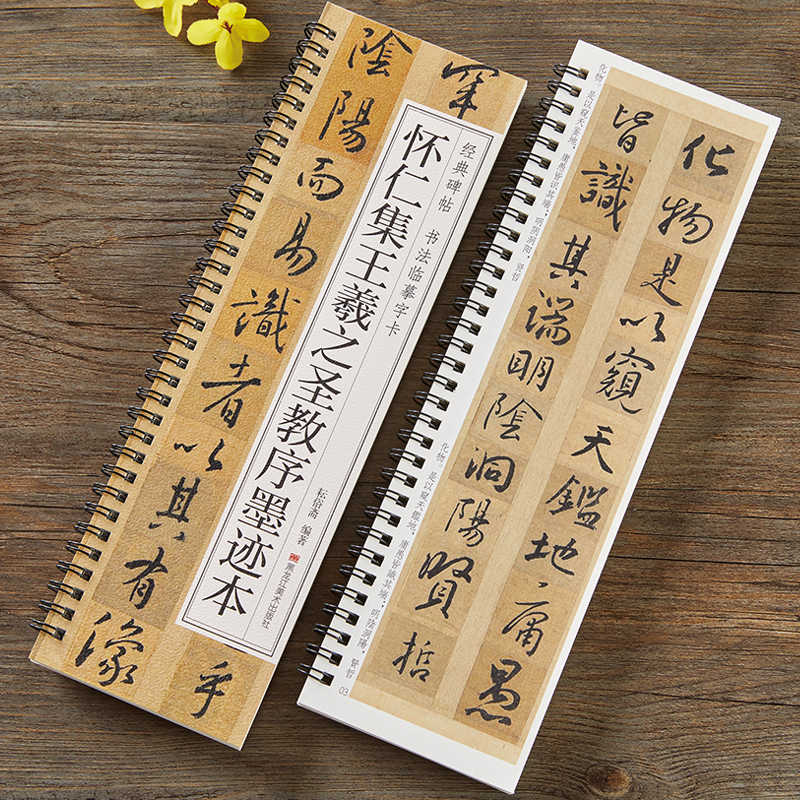 罕
乎
陰陽而易識者以其有像
经典碑帖 书法临摹字卡
怀仁集王羲之圣教序墨迹本
编著
黑龙江美术出版社
化物是以窺天鑑地庸愚
皆識其端明陰洞陽賢哲
化物。是以窥天鉴地，庸愚皆识其端；明阴洞阳，贤哲
化物。是以窺天鑑地，庸愚皆識其端；明陰洞陽，賢哲
03